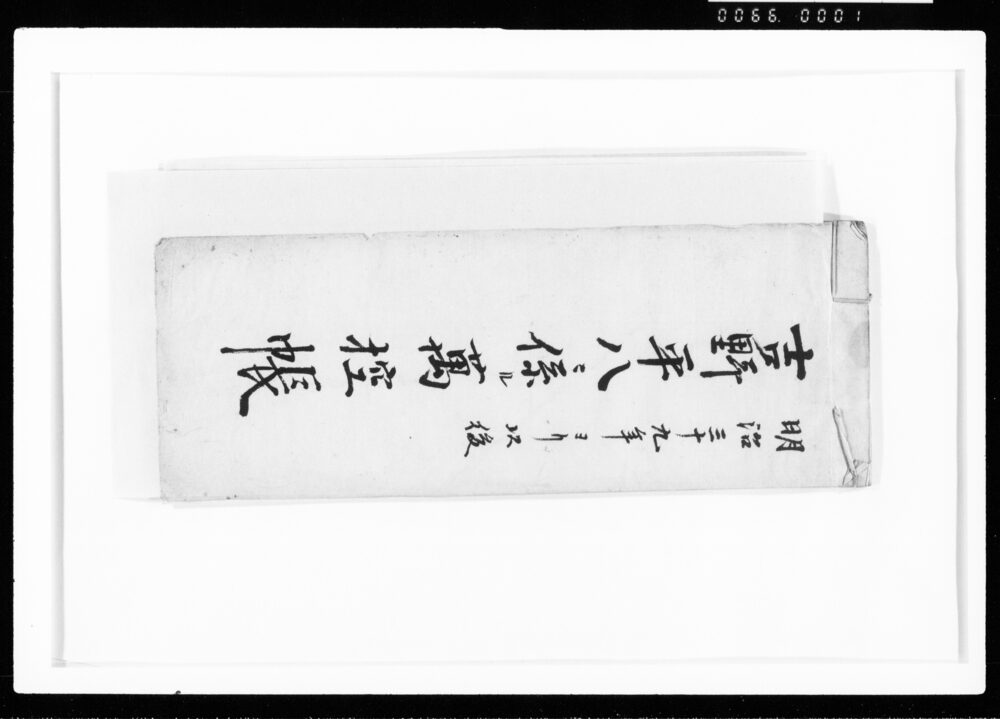 0066 0001
明治三十九年ヨリ以後
吉野平八ニ係ル萬控帳